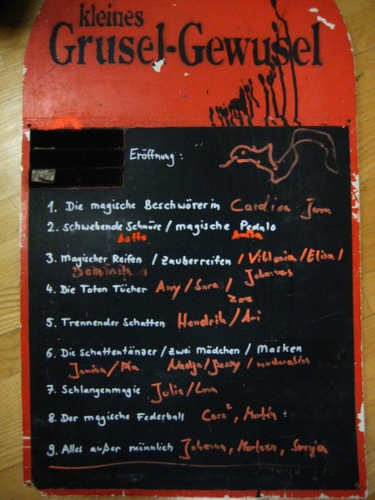 kleines
Grusel-Gewusel
Eröffnung:
1. Die magische Beschwörerin
2. schwebende Schnüre / magische Pedalo
Lotta
3. Magischer Reifen / Zauberreifen / Viktoria / Elisa /
Dominik Johannes
4. Die Toten Tücher Amy / Sara /
Zoe
5. Trennender Schatten Hendrik / Ari
6. Die Schattentänzer / zwei mädchen / Masken
Janina / Pia Nadja /
7. Schlangenmagie Julia / Lara
8. Der magische Federball Coco², Martin
9. Alles außer männlich Johanna,